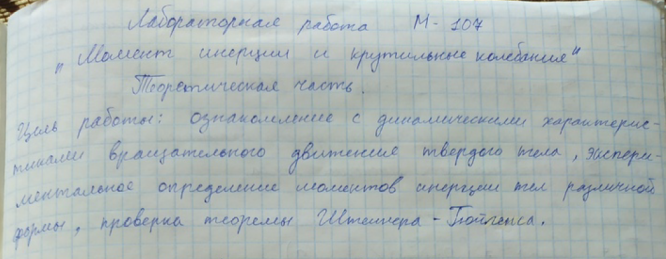 Лабораторная работа М-107
„Момент инерции и крутильные колебания"
Теоретическая часть.
Цель работы: ознакомление с динамическими характерис-
тиками вращательного движения твердого тела, экспери-
ментальное определение моментов инерции тел различной
формы, проверка теоремы Штейнера-Гюйгенса.